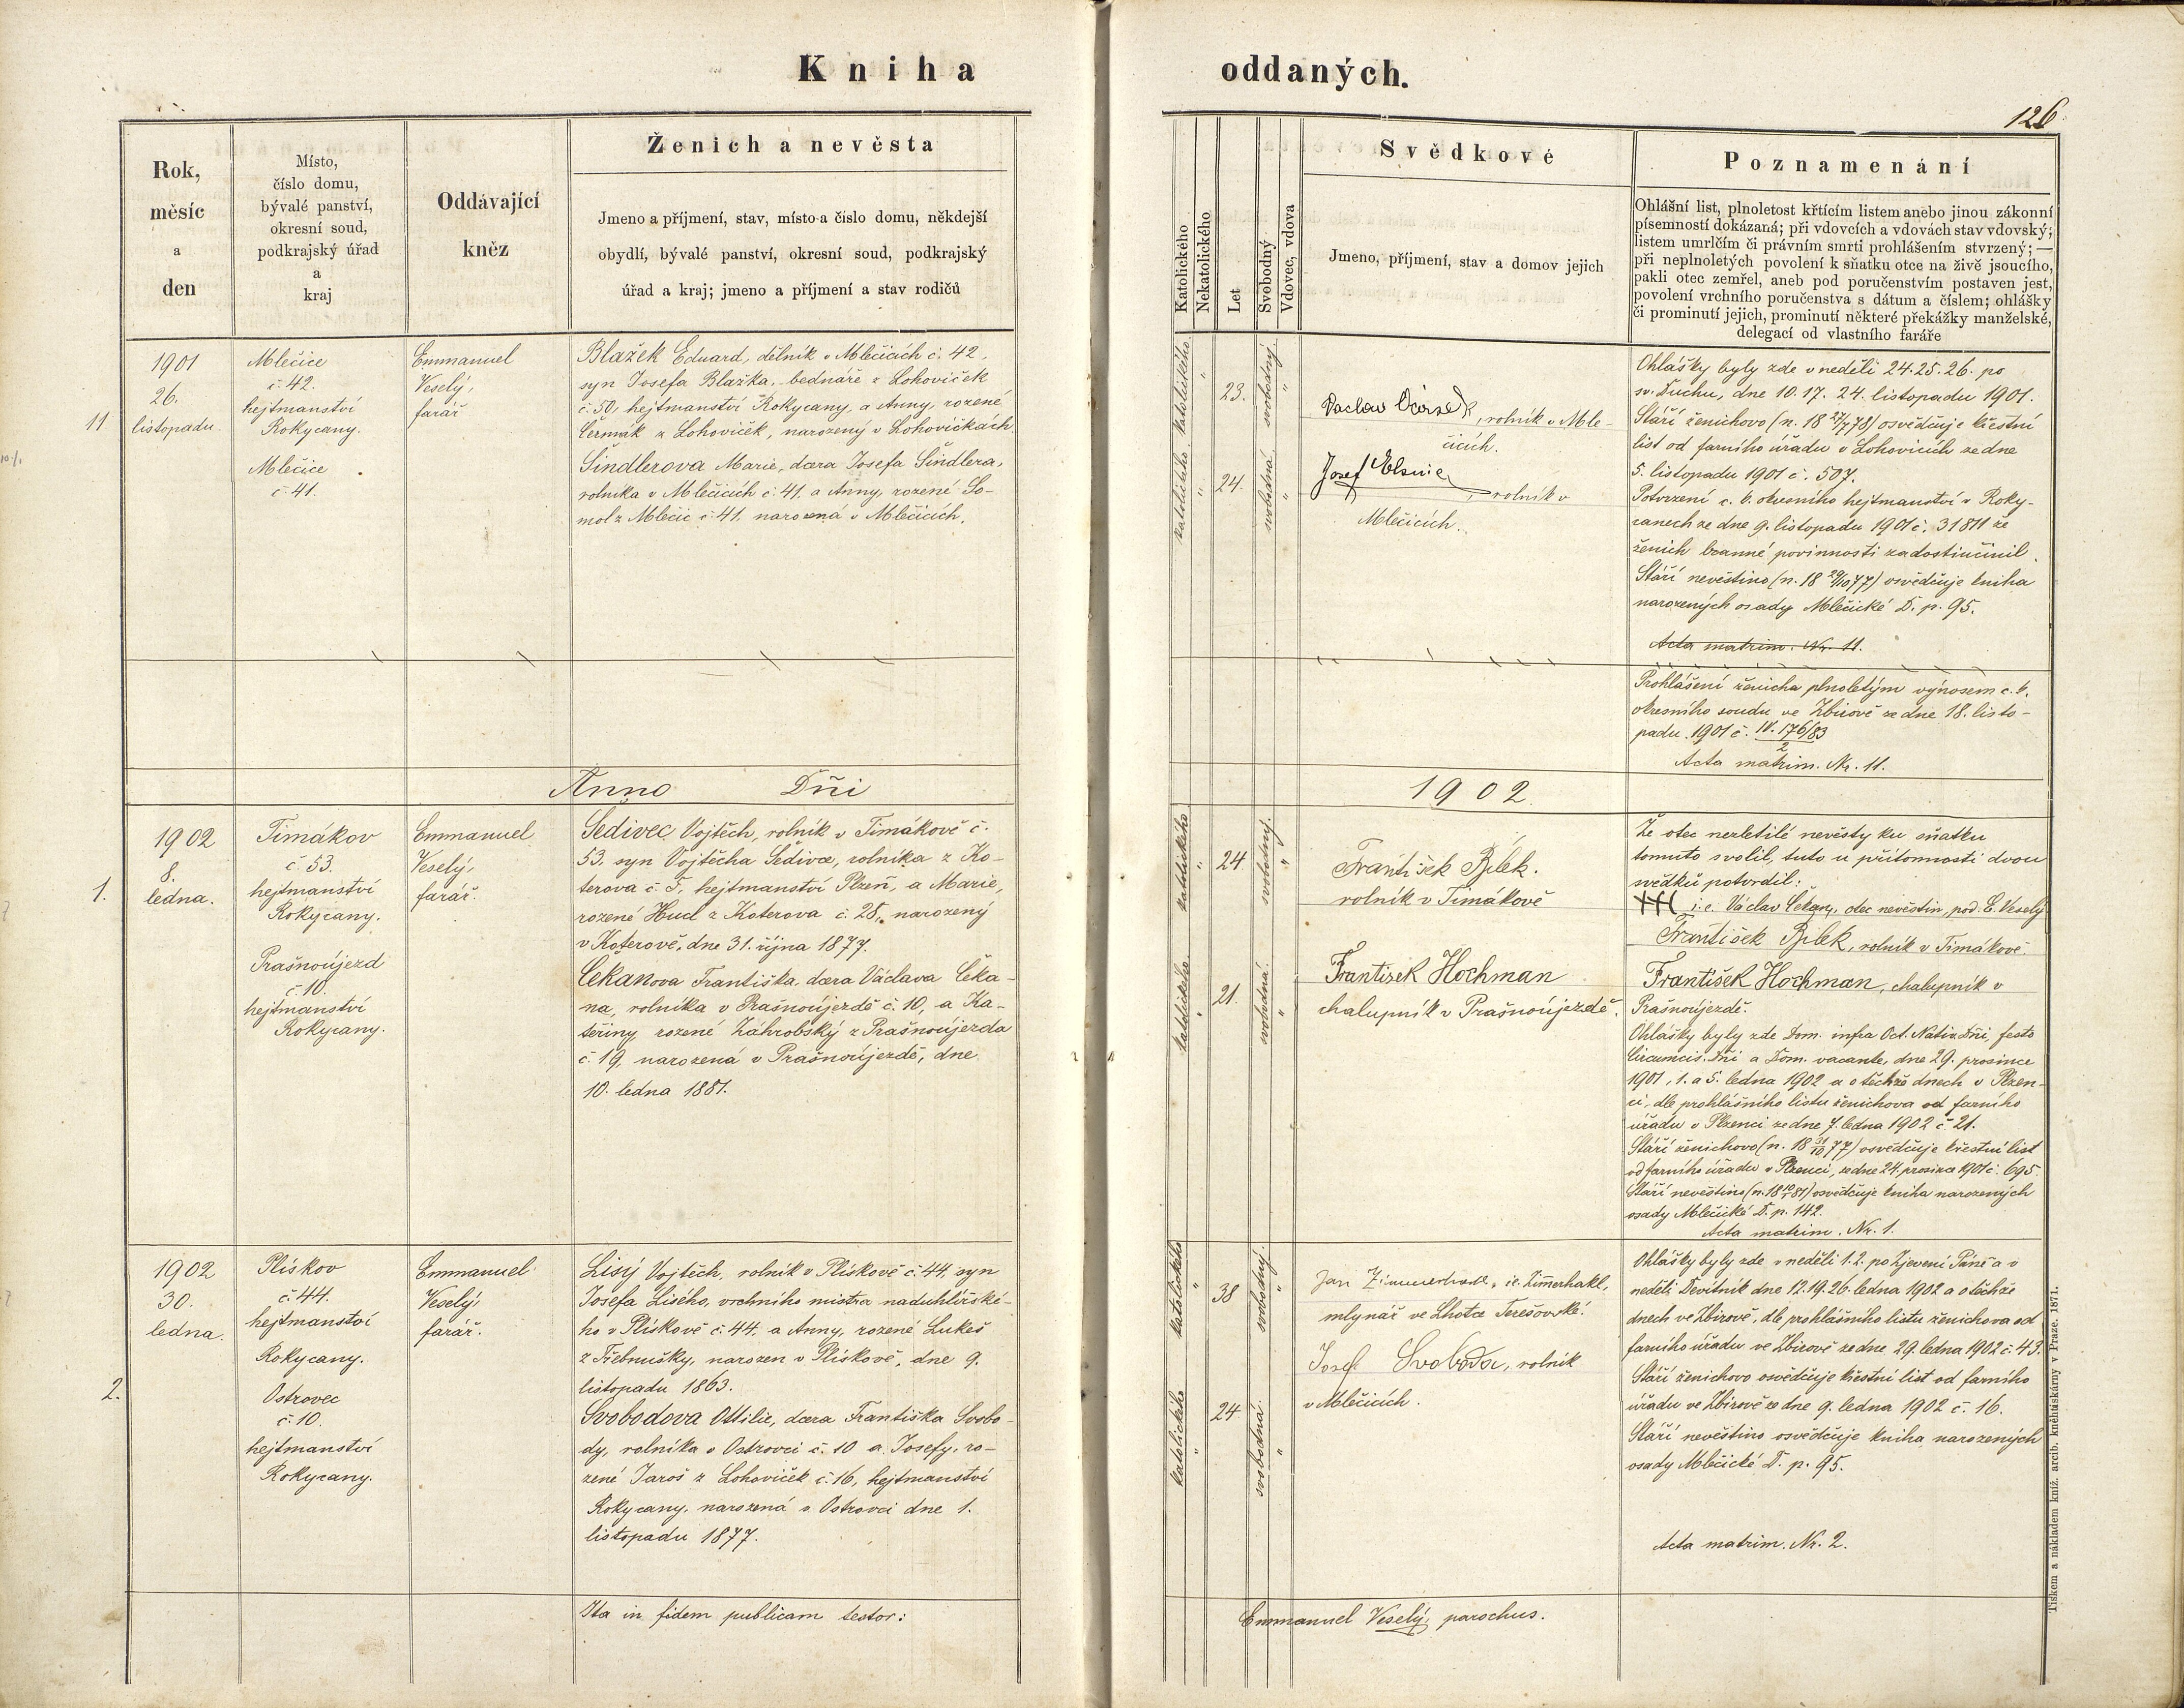 Kniha
oddaných.
126
Rok,
měsíc
a
den
Místo,
číslo domu,
bývalé panství,
okresní soud,
podkrajský úřad
a
kraj
Oddávající
kněz
Ženich a nevěsta
Jmeno a příjmení, stav, místo a číslo domu, někdejší
obydlí, bývalé panství, okresní soud, podkrajský
úřad a kraj; jmeno a příjmení a stav rodičů
Katolického
Nekatolického
Let
Svobodný
Vdovec, vdova
Svědkové
Jmeno, příjmení, stav a domov jejich
Poznamenání
Ohlášní list, plnoletost křtícím listem anebo jinou zákonní
písemností dokázaná; při vdovcích a vdovách stav vdovský;
listem umrlčím či právním smrti prohlášením stvrzený; —
při neplnoletých povolení k sňatku otce na živě jsoucího,
pakli otec zemřel, aneb pod poručenstvím postaven jest,
povolení vrchního poručenstva s dátum a číslem; ohlášky
či prominutí jejich, prominutí některé překážky manželské,
delegací od vlastního faráře
11
1901
26.
listopadu.
Mlečice
č. 42.
hejtmanství
Rokycany.
Mlečice
č. 41.
Emmanuel
Veselý,
farář
Blažek Eduard, dělník v Mlečicích č. 42,
syn Josefa Blažka, bednáře z Lohoviček
č. 50, hejtmanství Rokycany, a Anny, rozené
Čermák z Lohoviček, narozený v Lohovičkách.
Šindlerova Marie, dcera Josefa Šindlera,
rolníka v Mlečicích č. 41, a Anny, rozené So-
mol z Mlečic č. 41, narozená v Mlečicích.
katolického
"
23.
svobodný
"
katolického
"
24.
svobodná
"
Vaclav
, rolník v Mle-
čicích.
Josef
, rolník v
Mlečicích.
Ohlášky byly zde v neděli 24. 25. 26. po
sv. Duchu, dne 10. 17. 24. listopadu 1901.
Stáří ženichovo (n. 18 27/7 78) osvědčuje křestní
list od farního úřadu v Lohovicích ze dne
5. listopadu 1901 č. 507.
Potvrzení c. k. okresního hejtmanství v Roky-
canech ze dne 9. listopadu 1901 č. 31811 že
ženich branné povinnosti zadostiučinil.
Stáří nevěstino (n. 18 29/10 77) osvědčuje kniha
narozených osady Mlečické D. p. 95.
Acta matrim. Nr. 11.
Prohlášení ženicha plnoletým výnosem c. k.
okresního soudu ve Zbirově ze dne 18. listo-
padu 1901 č. IV. 176/83
2
Acta matrim. Nr. 11.
Anno Dñi
1902.
1.
1902
8.
ledna.
Timákov
č. 53.
hejtmanství
Rokycany.
Prašnoújezd
č. 10.
hejtmanství
Rokycany.
Emmanuel
Veselý,
farář.
Šedivec Vojtěch, rolník v Timákově č.
53. syn Vojtěcha Šedivce, rolníka z Ko-
terova č. 5, hejtmanství Plzeň, a Marie,
rozené Hucl z Koterova č. 28, narozený
v Koterově, dne 31. října 1877.
Čekanova Františka, dcera Václava Čeka-
na, rolníka v Prašnoújezdě č. 10, a Ka-
teřiny, rozené Záhrobský z Prašnoújezda
č. 19, narozená v Prašnoújezdě, dne
10. ledna 1881.
katolického
"
24
svobodný
"
katolického
"
21.
svobodná
"
František Bílek.
rolník v Timákově
František Hochman
chalupník v Prašnoújezdě.
Že otec nezletilé nevěsty ku sňatku
tomuto svolil, tuto u přítomnosti dvou
svědků potvrdil:
i. e. Václav Čekan, otec nevěstin, pod. E. Veselý
František Bílek, rolník v Timákově.
František Hochman, chalupník v
Prašnoújezdě.
Ohlášky byly zde Dom. infra Oct. Nativ. Dñi, festo
Circumcis. Dñi a Dom. vacante, dne 29. prosince
1901, 1. a 5. ledna 1902 a o těchže dnech v Plzen-
ci, dle prohlášního listu ženichova od farního
úřadu v Plzenci ze dne 7. ledna 1902 č. 21.
Stáří ženichovo (n. 18 31/10 77) osvědčuje křestní list
od farního úřadu v Plzenci, ze dne 24. prosince 1901 č. 695.
Stáří nevěstino (n. 18 10/1 81) osvědčuje kniha narozených
osady Mlečické D. p. 142.
Acta matrim. Nr. 1.
2.
1902
30.
ledna.
Plískov
č. 44.
hejtmanství
Rokycany.
Ostrovec
č. 10.
hejtmanství
Rokycany.
Emmanuel
Veselý,
farář.
Lisý Vojtěch, rolník v Plískově č. 44, syn
Josefa Lisého, vrchního mistra naduhlířské-
ho v Plískově č. 44, a Anny, rozené Lukeš
z Třebnušky, narozen v Plískově, dne 9.
listopadu 1863.
Svobodova Ottilie, dcera Františka Svobo-
dy, rolníka v Ostrovci č. 10 a Josefy, ro-
zené Jaroš z Lohoviček č. 16, hejtmanství
Rokycany, narozená v Ostrovci dne 1.
listopadu 1877.
katolického
"
38
svobodný
"
katolického
"
24
svobodná
"
Jan Zimmerhakl, i. e. Zimerhakl,
mlynář ve Lhotce Terešovské.
Josef Svoboda, rolník
v Mlečicích.
Ohlášky byly zde v neděli 1. 2. po Zjevení Páně a v
neděli Devítník dne 12. 19. 26. ledna 1902 a o těchže
dnech ve Zbirově, dle prohlášního listu ženichova od
farního úřadu ve Zbirově ze dne 29. ledna 1902 č. 43.
Stáří ženichovo osvědčuje křestní list od farního
úřadu ve Zbirově ze dne 9. ledna 1902 č. 16.
Stáří nevěstino osvědčuje kniha narozených
osady Mlečické D. p. 95.
Acta matrim. Nr. 2.
Ita in fidem publicam testor:
Emmanuel Veselý, parochus.
Tiskem a nákladem kníž. arcib. kněhtiskárny v Praze. 1871.